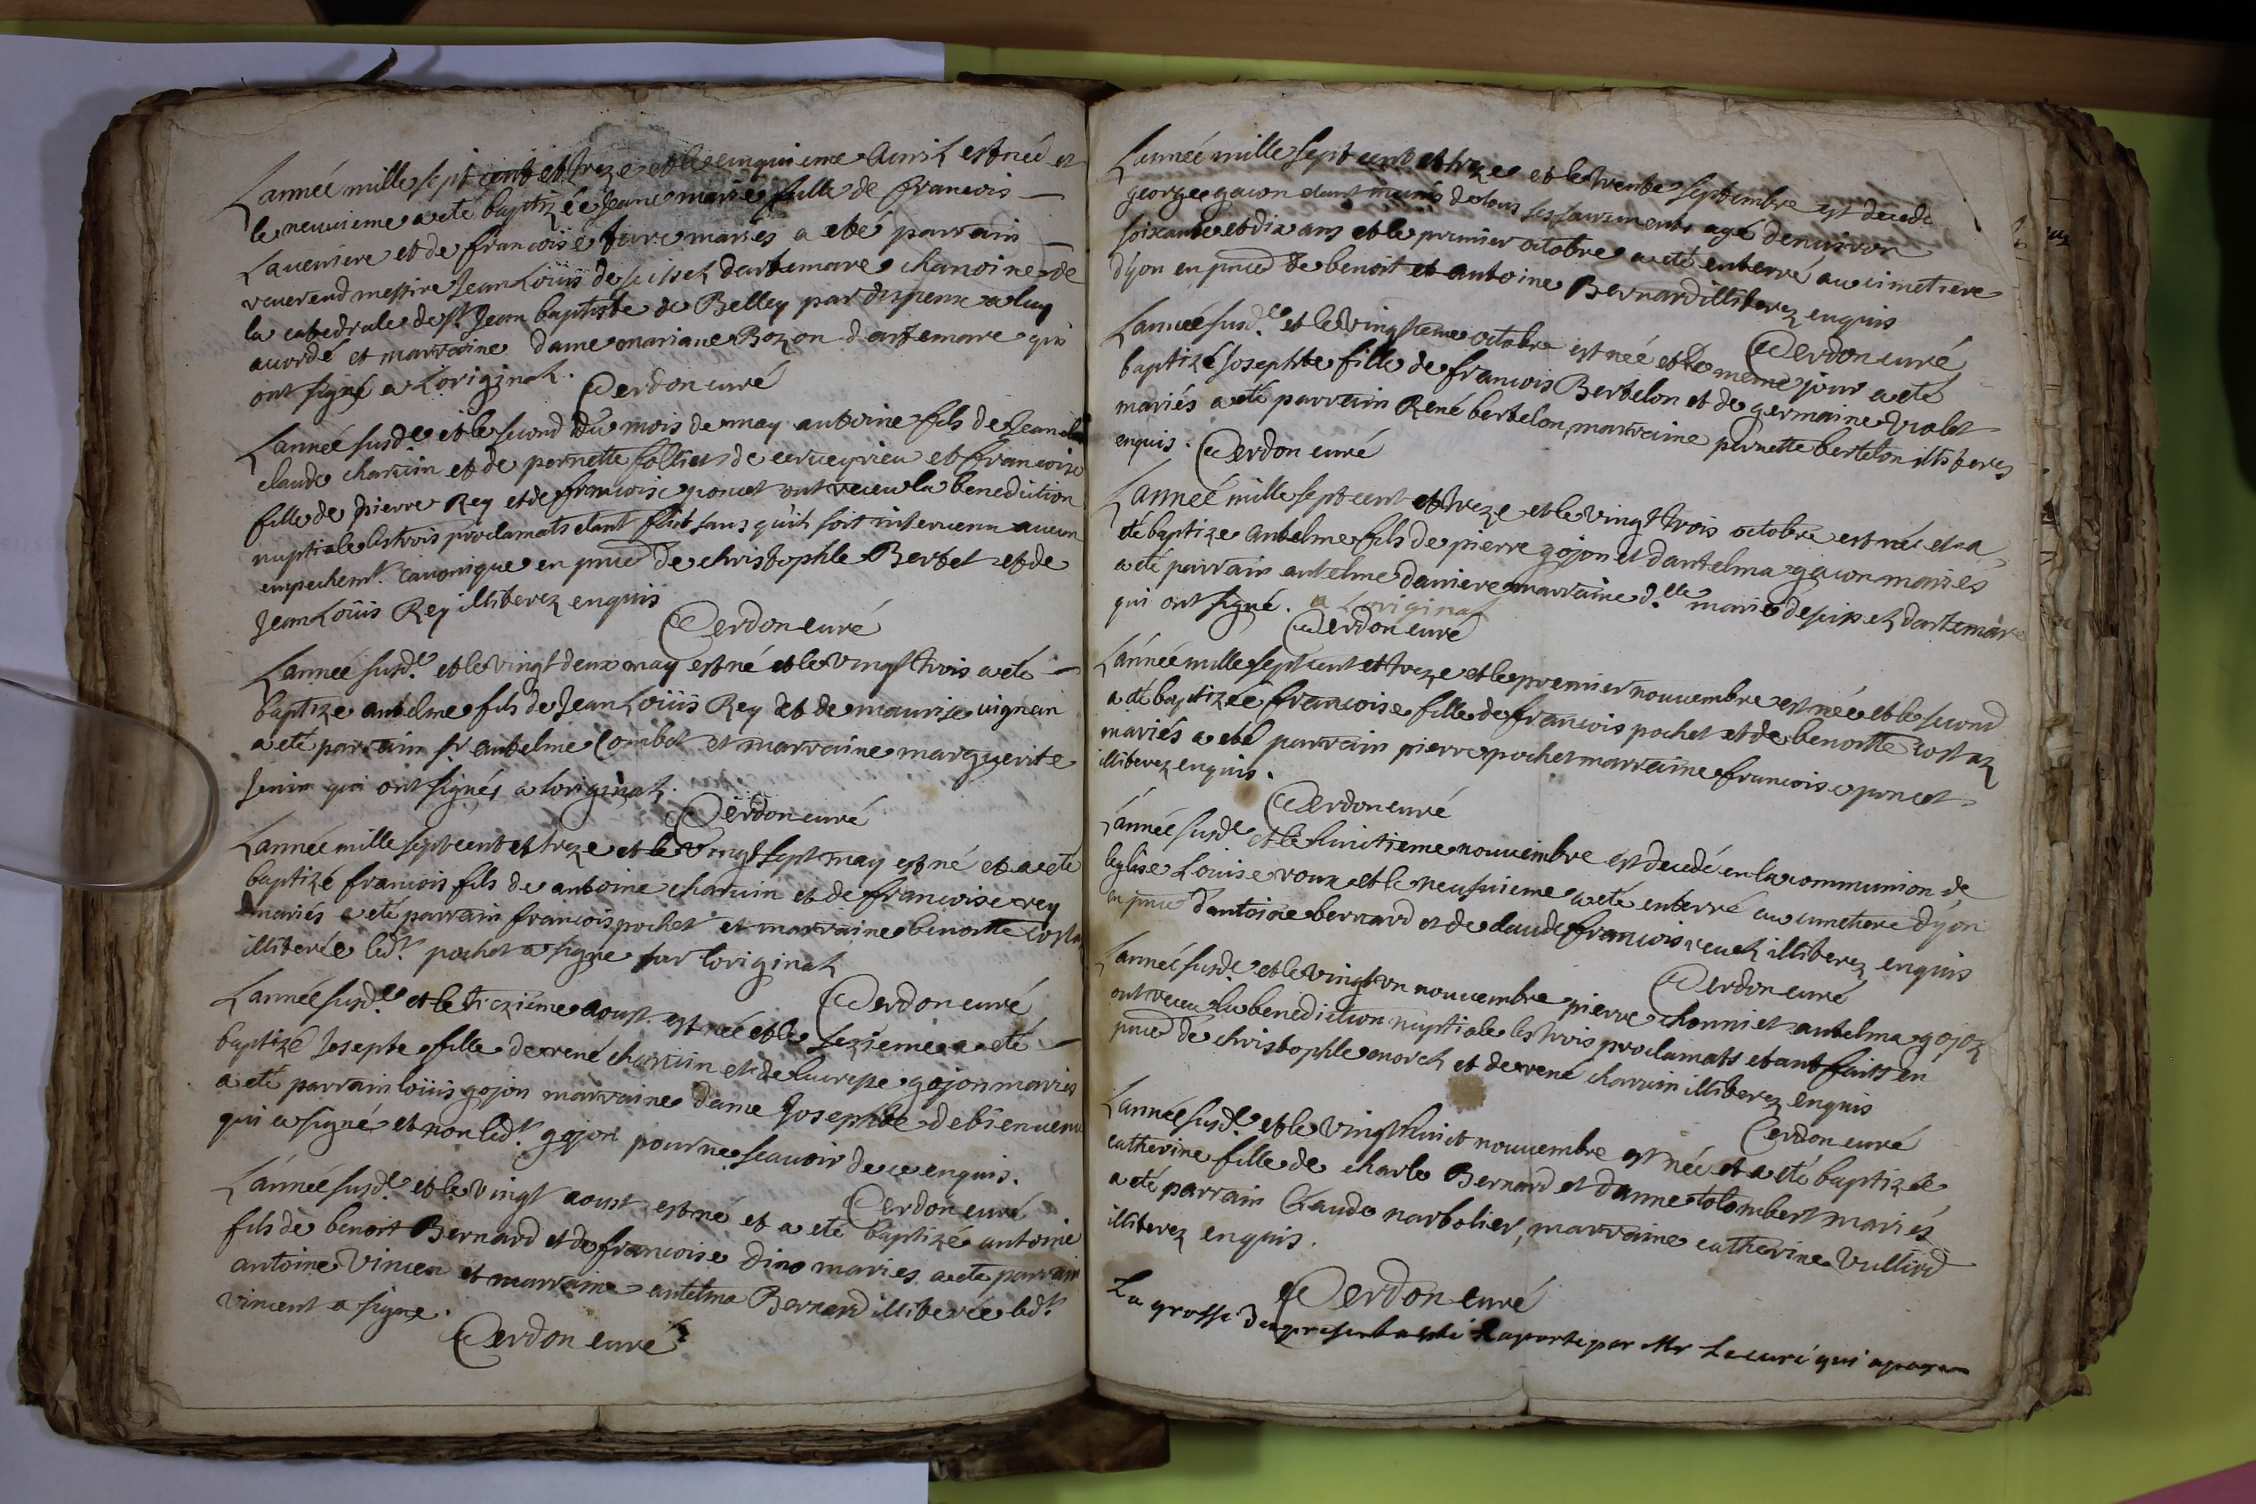 L'année mille sept cent et treze et le cinquieme Auril est née et
le neuuieme a eté baptizée Jeane marie fille de francois
Laueniere et de francoise mariés a eté parrain
reuerend messire Jean Loüis de seissel dartemare chanoine de
la catedrale de st Jean baptiste de Belley par dispense a luy
accordé et marraine dame mariane Bozon dartemare qui
ont signé a Loriginal. Cerdon curé
L'année susde et le second du mois de may antoine fils de Jean
claude charuin et de pernette folliet de cerueyrieu et francoise
fille de pierre Rey et de francoise poncet ont receu la benediction
nuptiale les trois proclamats etant fait sans quil soit interuenu aucun
empechemt canonique en pnce de christophle Bertet et de
Jean Loüis Rey illiterez enquis
Cerdon curé
L'année susde et le vingt deux may est né et le vingt trois a eté
baptize antelme fils de Jean Loüis Rey et de maurise uignein
a eté parrain sr antelme Combet et marraine marguerite
Jenin qui ont signés a loriginal.
Cerdon curé
L'année mille sept cent et treze et le vingt sept may est né et a eté
baptizé francois fils de antoine charuin et de francoise rey
mariés a eté parrain francois pochet et marraine benoitte costaz
illiterée ledt pochet a signe sur loriginal
Cerdon curé
L'année susde et le treziéme aoust est née et le sezieme a eté
baptizé Josepte fille de rené charuin et de lucresse gojon mariés
a eté parrain loüis gojon marraine dame Josephte de bienuenu
qui a signé et non ledt gojon pour ne scauoir de ce enquis.
Cerdon curé
L'année susde et le vingt aoust est né et a eté baptizé antoine
fils de benoit Bernard et de francoise Dino mariés a eté parrain
antoine Vincen et marraine antelma Bernard illiterée ledt
vincent a signe.
Cerdon curé
L'année mille sept cent et treze et le trente septembre est decedé
george gacon etant muni de tous ses sacrements agé denuiron
soixante et dix ans et le premier octobre a eté enterré au cimetiere
dyon en pnce de benoit et antoine Bernard illiterez enquis
Cerdon curé
L'année susde et le vingtieme octobre est née et le meme jour a eté
baptizé Josephte fille de francois Bertelon et de germaine Violet
mariés a eté parrain René bertelon, marraine pernette bertelon illiterez
enquis. Cerdon curé
L'année mille sept cent et treze et le vingt trois octobre est né et a
eté baptize antelme fils de pierre gojon et dantelma gacon mariés
a eté parrain antelme daniere marraine dlle marie de seissel dartemare
qui ont signé. a Loriginal
Cerdon curé
L'année mille sept cent et treze et le premier nouuembre est née et le second
a eté baptizée francoise fille de francois pochet et de benoitte costaz
mariés a eté parrain pierre pochet marraine francoise poncet
illiterez enquis.
Cerdon curé
L'année susde et le huitieme nouuembre est decedé en la communion de
leglise Louise roux et le neufuieme a eté enterré au cimetiere dyon
en pnce dantoine bernard et de claude francois reuel illiterez enquis
Cerdon curé
L'année susde et le vingt un nouuembre pierre chonniet antelma gojoz
ont receu la benediction nuptiale les trois proclamats etant faits en
pnce de christophle morel et de rené charuin illiterez enquis
Cerdon curé
L'année susde et le vingt huict nouuembre est née et a eté baptizée
catherine fille de charle Bernard et danne tolombert mariés
a eté parrain Claude narbolier, marraine catherine Vulliod
illiterez enquis.
Cerdon curé
La grosse du present a esté Raporte par Mr Le curé qui a